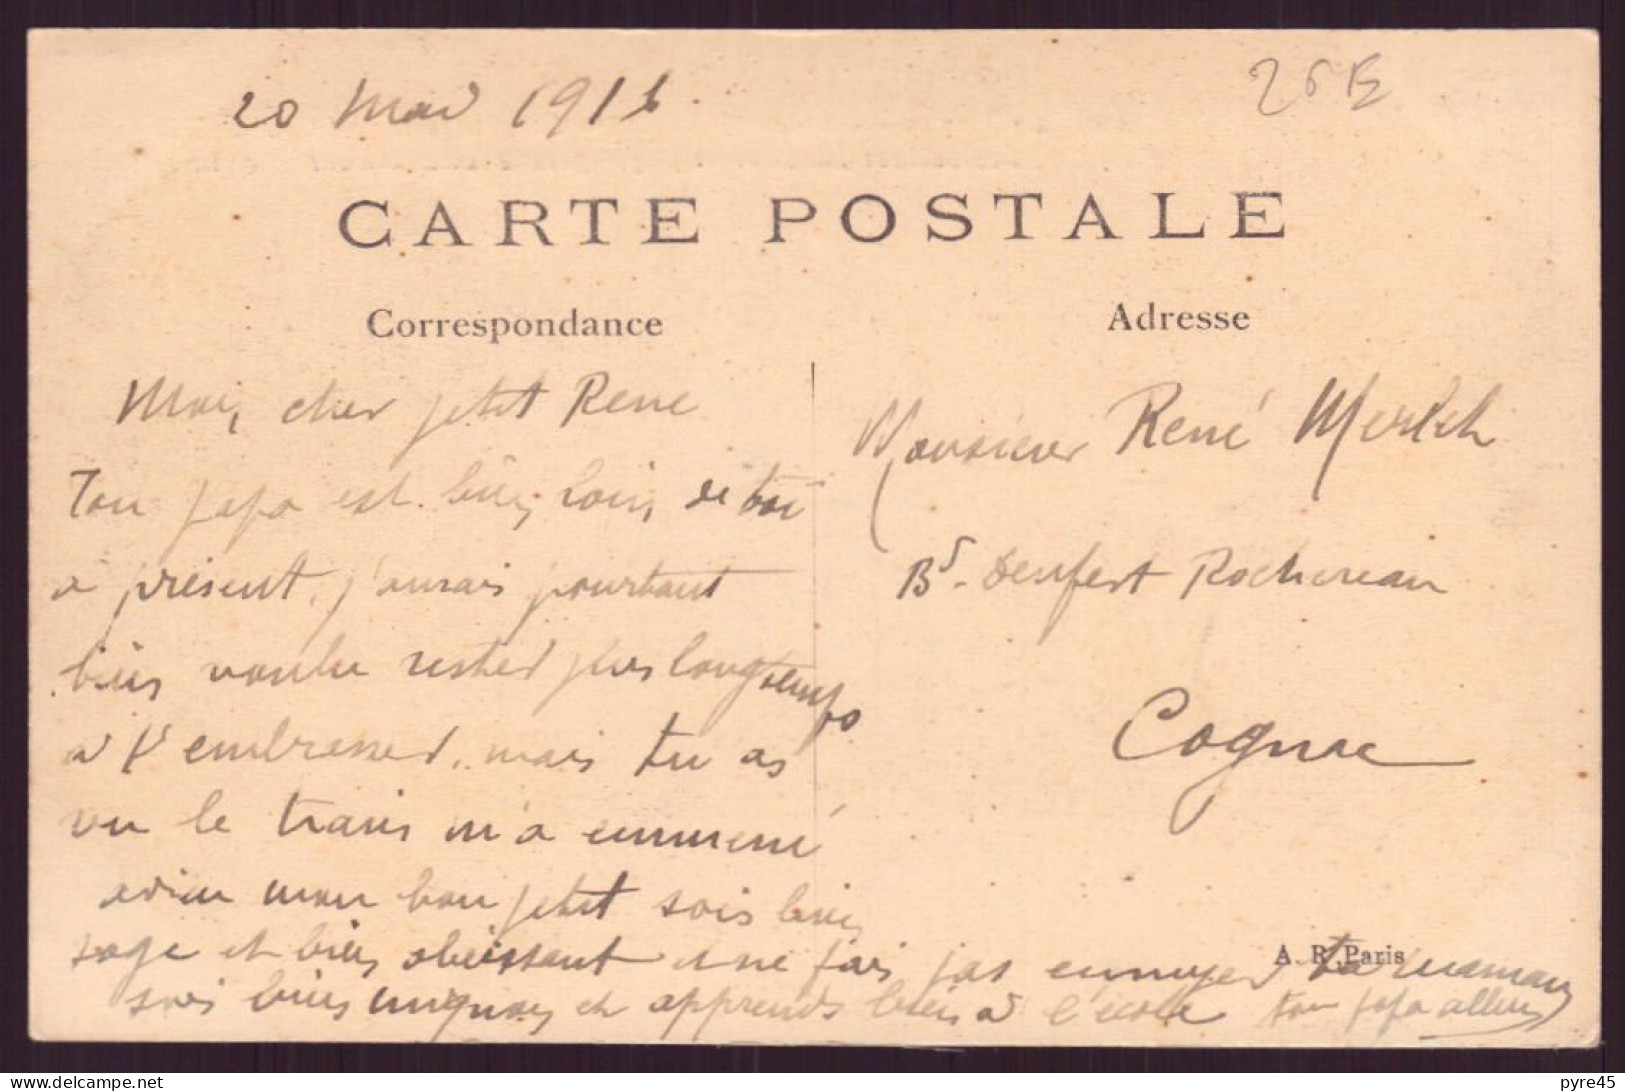 20 Mai 1916.
CARTE POSTALE
Correspondance
Mon cher petit René
Ton papa est bien loin de toi
à présent, j'aurais pourtant
bien voulu rester plus longtemps
à t'embrasser, mais tu as
vu le train m'a emmené
adieu mon bon petit sois bien
sage et bien obéissant et ne fais pas ennuyer ta maman
sois bien mignon et apprends bien à l'école ton papa
Adresse
Monsieur René
Bd. Denfert Rochereau
Cognac
A. R. Paris
delcampe.net
pyre45